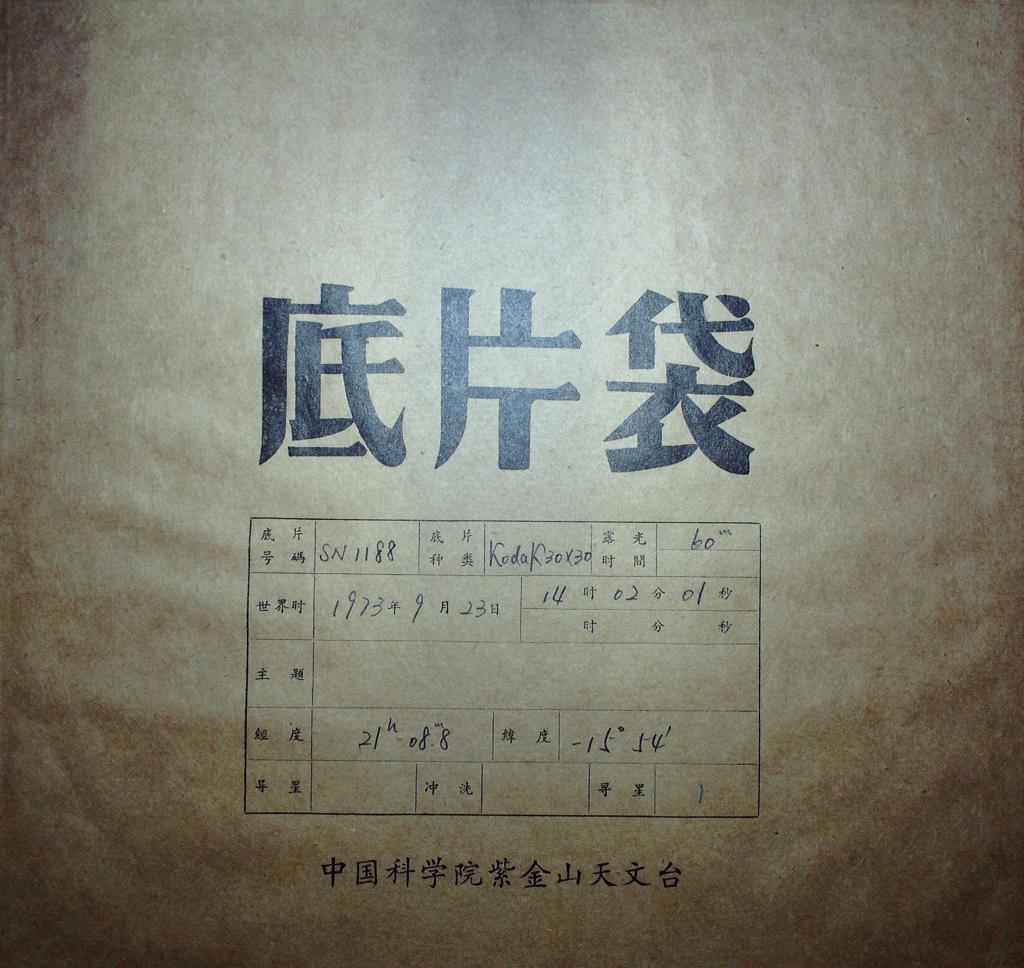 底片袋
底片号碼 SN 1188 底片种类 Kodak 30x30 露光时間 60ᵐ
世界时 1973年 9月 23日 14时 02分 01秒
时 分 秒
主題
經度 21ʰ 08.ᵐ8 緯度 -15° 54′
导星 冲洗 寻星 1
中国科学院紫金山天文台